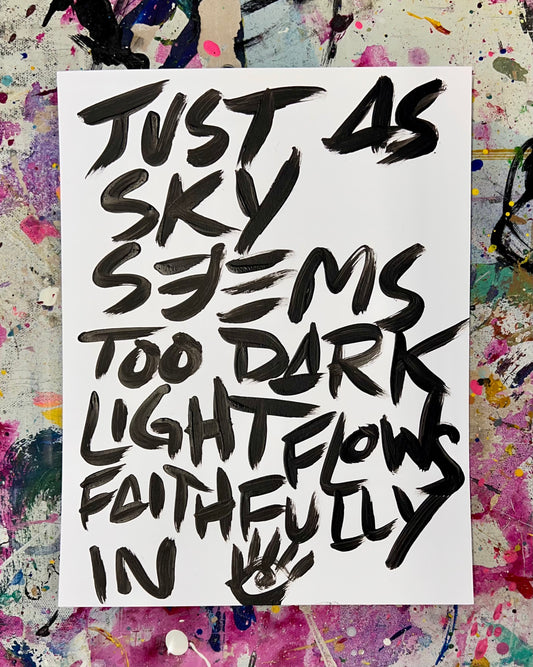 JUST AS
SKY
SEEMS
TOO DARK
LIGHT FLOWS
FAITHFULLY
IN